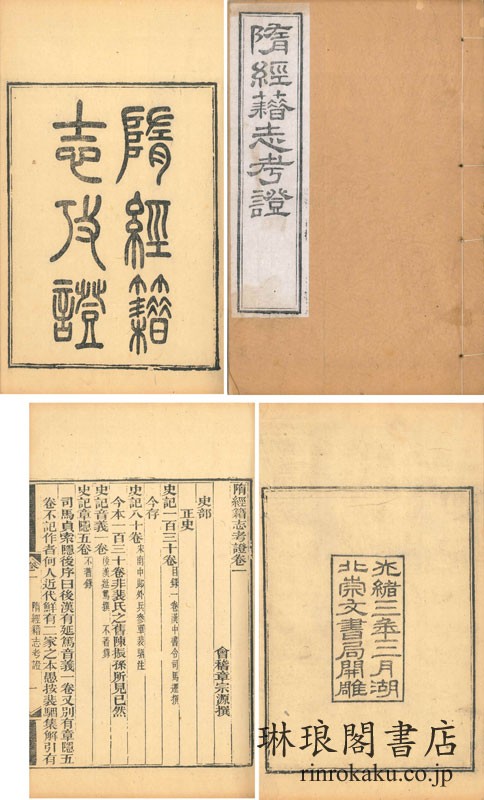 隋經籍
志攷證
隋經籍志考證
隋經籍志考證卷一
會稽章宗源撰
史部
正史
史記一百三十卷目錄一卷漢中書令司馬遷撰
今存
史記八十卷宋南中郎外兵參軍裴駰注
今本一百三十卷非裴氏之舊陳振孫所見已然
史記音義一卷後漢延篤撰 不著錄
史記章隱五卷不著錄
司馬貞索隱後序曰後漢有延篤音義一卷又別有章隱五
卷不記作者何人近代鮮有一家之本愚按裴駰集解引有
卷一 隋經籍志考證 一
光緒三年十二月湖
北崇文書局開雕
琳琅閣書店
rinrokaku.co.jp